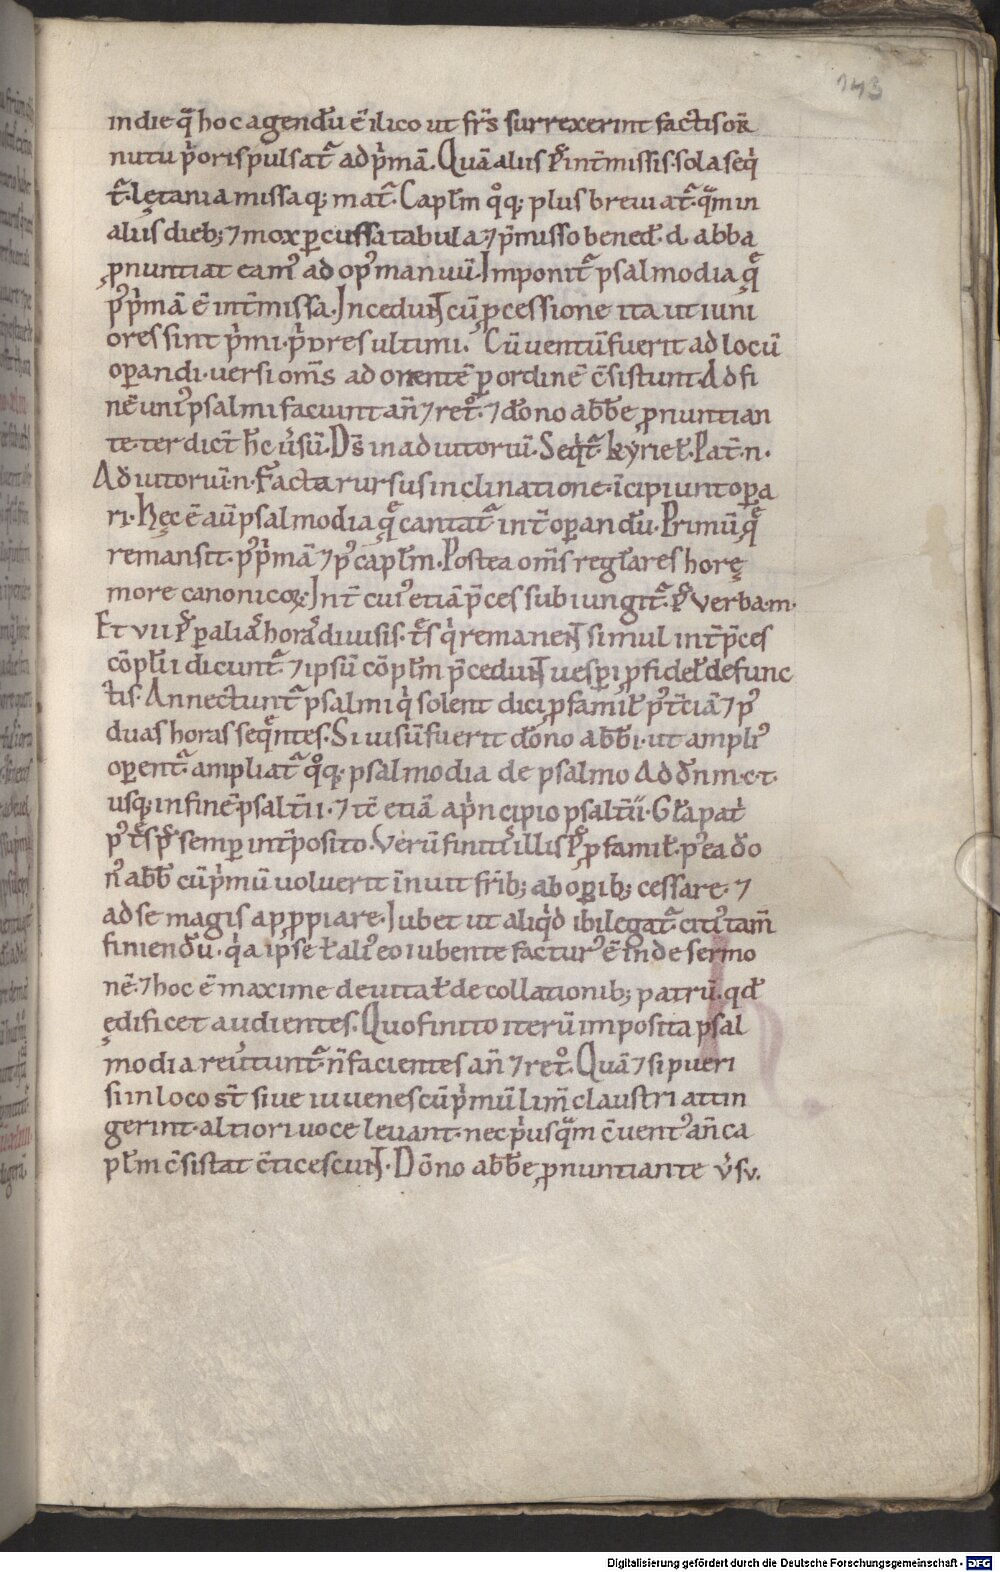 143
in die qͣ hoc agendū ē ilico ut frs̄ surrexerint factis or̄
nutu pͥoris pulsatᷓ ad pͥmā. Quā aliis p̄ int̄missis. sola seqͥ
tᷓ. lętania missaq; mat̄. Capłm qͦq; plus breuiatᷓ. qᷓm in
aliis dieb; ⁊ mox ꝑcussa tabula. ⁊ p̄misso bened̄. d. abba
ꝓnuntiat eamꝰ ad opꝰ manuū. Imponitᷓ psalmodia quę̄
pꝰ pͥmā ē int̄missa. Incedunt cū ꝓcessione ita ut iuni
ores sint pͥmi. pͥores ultimi. Cū uentū fuerit ad locū
oꝑandi. uersi oms̄ ad orientē ꝑ ordinē c̄sistunt. Ad fi
nē uniꝰ psalmi faciunt an̄ ⁊ retͦ. ⁊ dōno abb̄e ꝓnuntian
te. ter dicit̄ h̄c u̓sū. Ds̄ in adiutoriū. Seqͥtᷓ kyrieł. Pat̄. n.
Adiutoriū. n. Facta rursus inclinatione. īcipiunt oꝑa
ri. Hęc ē aū psalmodia quę̄ cantatᷓ int̄ oꝑandū. Primū quę̄
remansit. pꝰ pͥmā ⁊ pꝰ capłm. Postea oms̄ regłares horę
more canonicoꝝ. Int̄ cuiꝰ etiā p̄ces subiungitᷓ. p̄ Verba. m.
Et vii p̄. ꝑ aliāͣ horāͣ diuisis. tēs qͥ remanent simul int̄ p̄ces
cōpłii dicuntᷓ. ⁊ ipsū cōpłm p̄cedunt uesꝑi ꝓ fideł defunc
tis. Annectuntᷓ psalmi qͥ solent dici ꝓ famił pꝰ t̄ciā ⁊ pꝰ
duas horas sequę̄ntes. Si uisū fuerit dōno abb̄i. ut ampliꝰ
oꝑentᷓ. ampliatᷓ qͦq; psalmodia de psalmo Ad dn̄m. c. t.
usq; in finē psalt̄ii. ⁊ tc̄ etiā a pͥncipio psalt̄ii. Głapatͥ
pꝰ tēs p̄ semꝑ int̄posito. Verū finitͥs illis p̄ ꝓ famił. pꝰ ea dō
nꝰ abb̄ cū pͥmū uoluerit īnuit frīb; ab oꝑib; cessare. ⁊
ad se magis apꝓpiare. Iubet ut aliqͥd ibi legatᷓ. citiꝰ tam̄
finiendū. qͥa ipse ł aliꝰ eo iubente facturꝰ ē inde sermo
nē. ⁊ hoc ē maxime de uitał de collationib; patrū. qd̄
ędificet audientes. Quo finito iterū imposita psal
modia reu̓tuntᷓ. n̄ facientes an̄ ⁊ retͦ. Quā ⁊ si pueri
si in loco st̄ siue iuuenes cū pͥmū lim̄ claustri attin
gerint. altiori uoce leuant. nec pͥusqᷓm c̄uentꝰ an̄ ca
płm c̄sistat c̄ticescunt. Dōno abb̄e ꝓnuntiante u̓su.
Digitalisierung gefördert durch die Deutsche Forschungsgemeinschaft - DFG